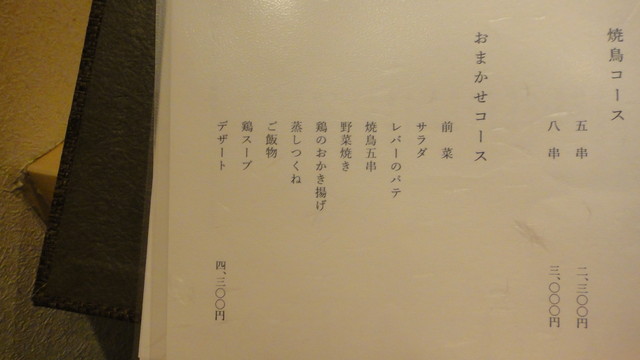 焼鳥コース
五串 二、三〇〇円
八串 三、〇〇〇円
おまかせコース
前菜
サラダ
レバーのパテ
焼鳥五串
野菜焼き
鶏のおかき揚げ
蒸しつくね
ご飯物
鶏スープ
デザート 四、三〇〇円